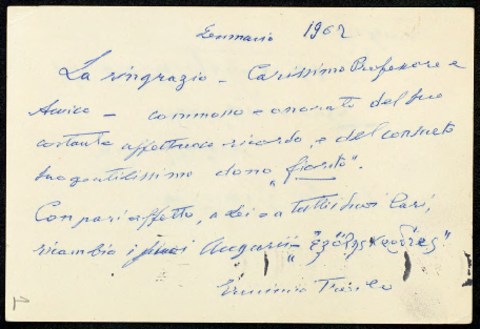 Gennaio 1962
La ringrazio - Carissimo Professore e
Amico - commosso e onorato del suo
costante affettuoso ricordo, e del consueto
suo gentilissimo dono „fiorito".
Con pari affetto, a Lei e a tutti i Suoi Cari,
ricambio i Auguri -
Erminio